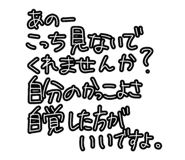 あのー
こっち見ないで
くれませんか?
自分のかっこよさ
自覚した方が
いいですよ。